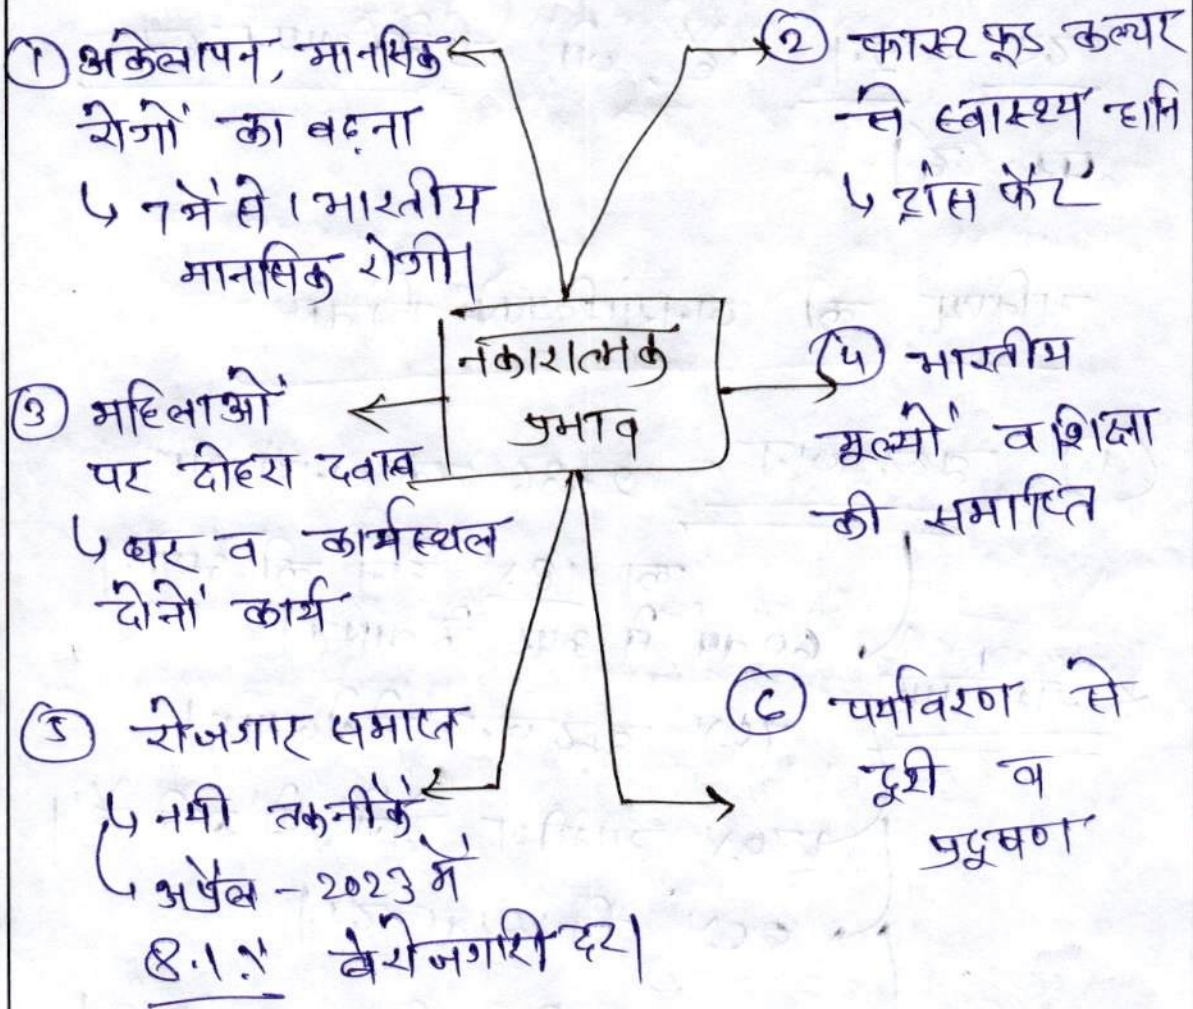 ① अकेलापन, मानसिक
रोगों का बढ़ना
↳ 7 में से 1 भारतीय
मानसिक रोगी।
② फास्ट फूड कल्चर
से स्वास्थ्य हानि
↳ ट्रांस फैट
नकारात्मक
प्रभाव
③ महिलाओं
पर दोहरा दवाब
↳ घर व कार्यस्थल
दोनों कार्य
④ भारतीय
मूल्यों व शिक्षा
की समाप्ति
⑤ रोजगार समाप्त
↳ नयी तकनीकें
↳ अप्रैल - 2023 में
8.1% बेरोजगारी दर।
⑥ पर्यावरण से
दूरी व
प्रदूषण